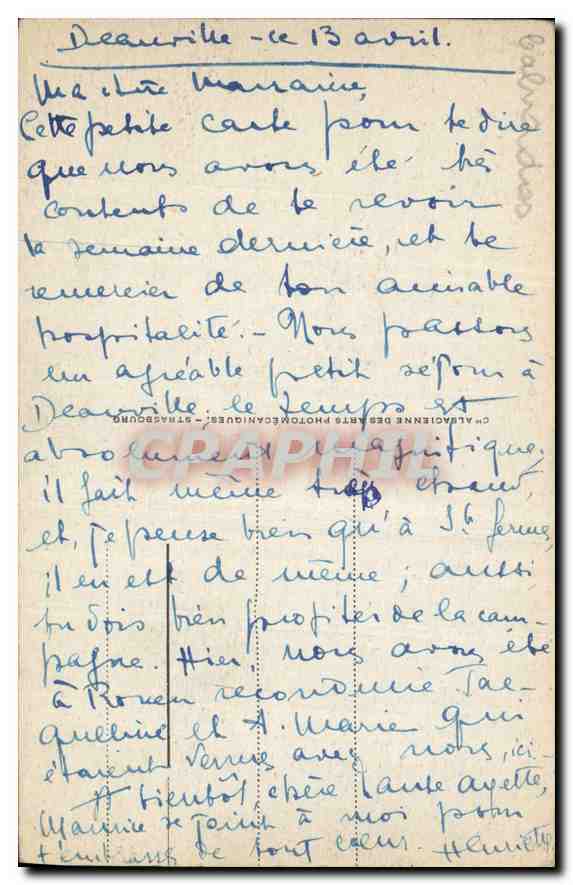 Deauville - ce 13 avril.
Ma chère Marraine,
Cette petite carte pour te dire
que nous avons été très
contents de te revoir
la semaine dernière, et te
remercier de ton aimable
hospitalité. - Nous passons
un agréable petit séjour à
Deauville, le temps est
Cie ALSACIENNE DES ARTS PHOTOMÉCANIQUES. - STRASBOURG
absolument magnifique.
CPAPHIL
il fait même trop chaud,
et, je pense bien qu'à St. Ferme,
il en est de même ; aussi
tu dois bien profiter de la cam-
pagne. Hier, nous avons été
à Rouen reconduire Jac-
queline et A. Marie qui
étaient venus avec nous, ici-
A bientôt, chère tante
Maurice se joint à moi pour
t'embrasser de tout cœur. Henriette